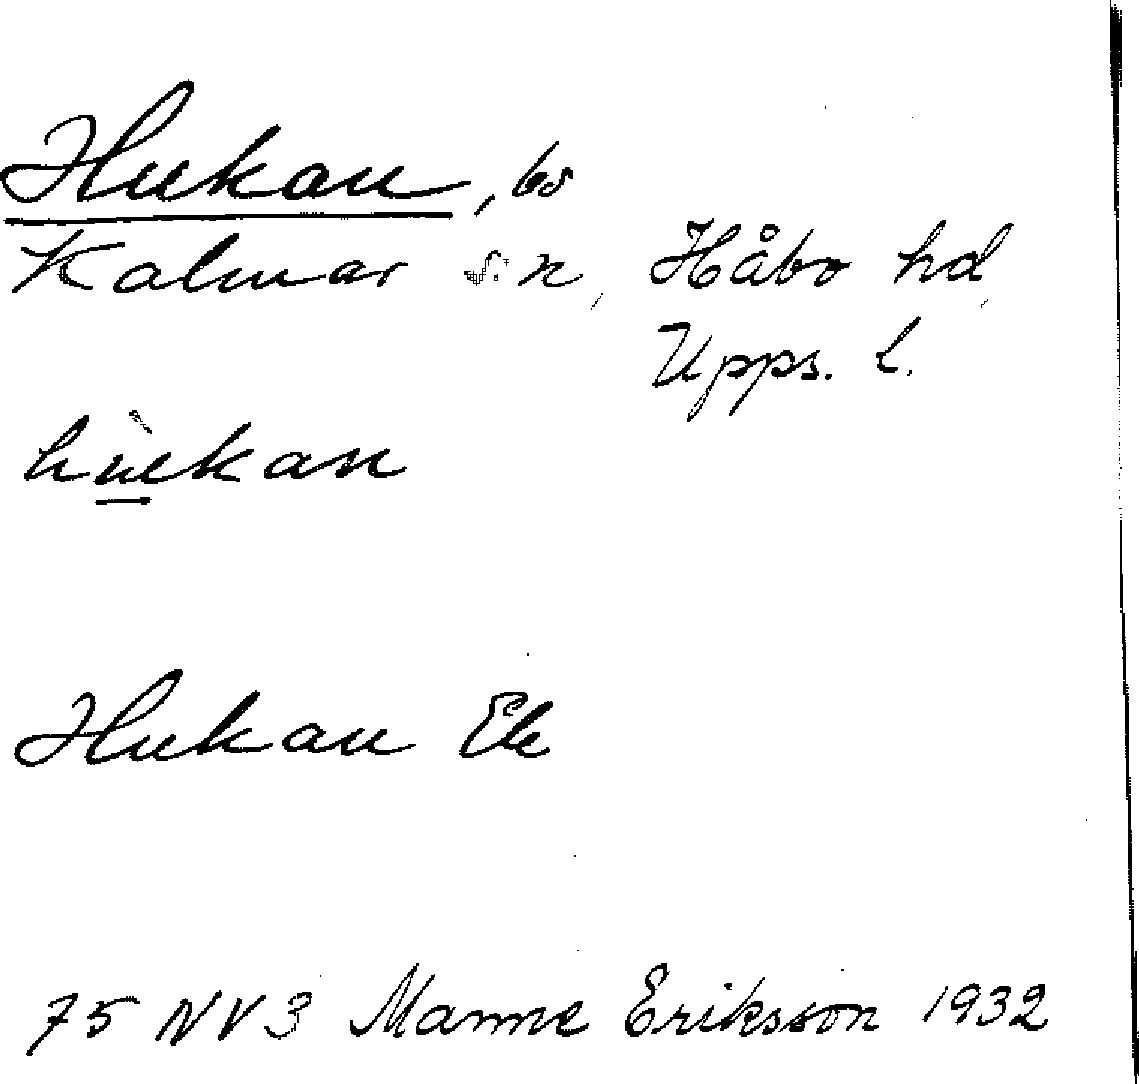 Hukan, bs
Kalmar sn, Håbo hd,
Upps. l.
hùkan
Hukan Ek
75 NV3 Manne Eriksson 1932